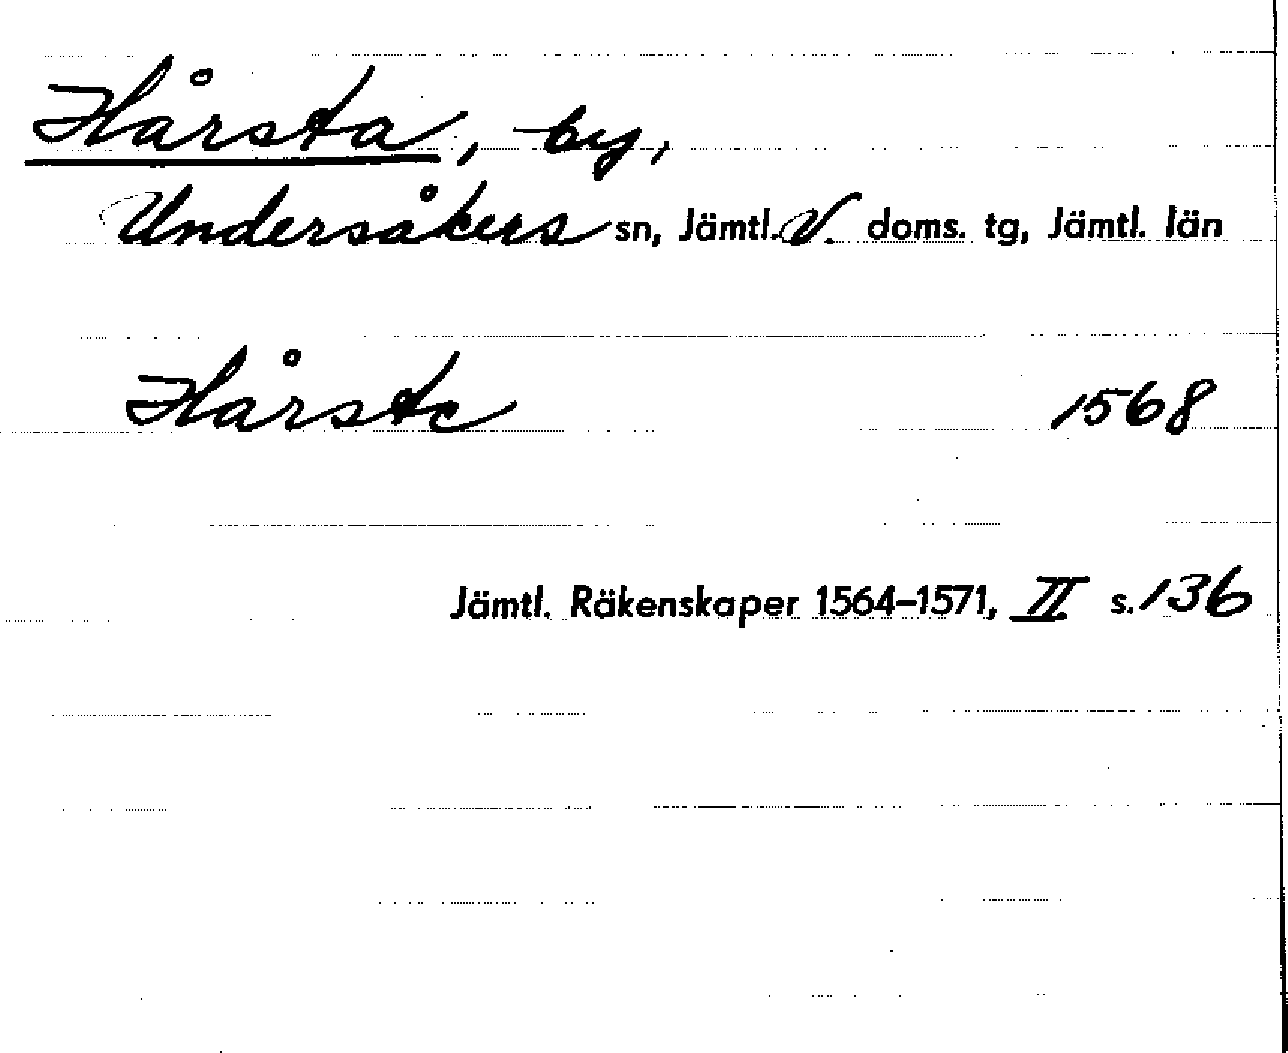 Hårsta, by,
Undersåkers sn, Jämtl. V. doms. tg, Jämtl. län
Hårsta 1568
Jämtl. Räkenskaper 1564–1571, II s. 136